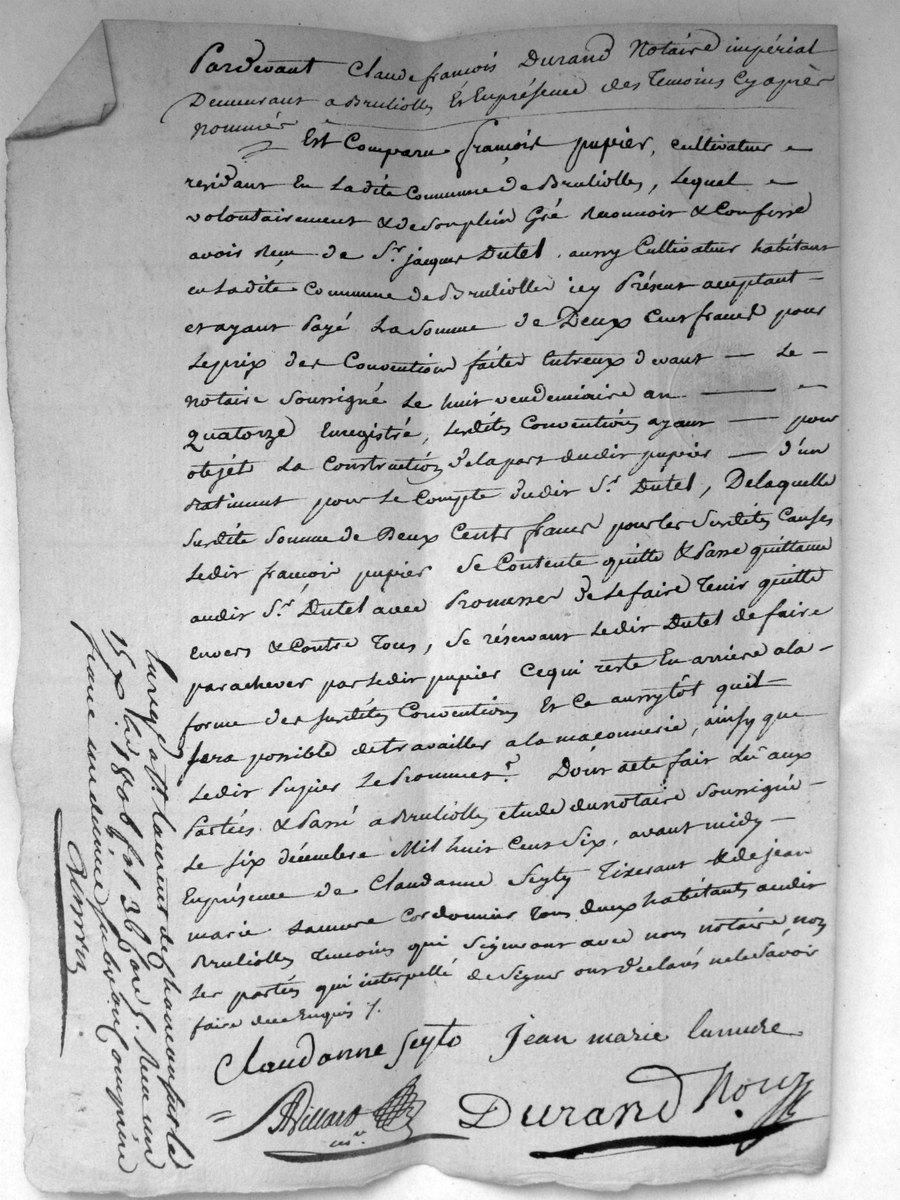 Pardevant Claude françois Durand Notaire impérial
Demeurant a Bruliolles Et Enprésence des Temoins Cy après
nommés
Est Comparu françois pupier, cultivateur
residant En Ladite Commune de Bruliolles, Lequel
volontairement & de Son plein Gré Reconnoit & Confesse
avoir Recu de Sr. jacques Dutel aussy Cultivateur habitant
en Ladite Commune de Bruliolles icy Présent acceptant
et ayant Payé La Somme de Deux Cent francs pour
Le prix des Conventions faites Entreux devant Le
notaire Soussigné Le huit vendemiaire an
quatorze Enregistré, Lesdites Conventions ayant pour
objet La Construction de la part dudit pupier d'un
Batiment pour Le Compte dudit Sr. Dutel, De laquelle
Susdite Somme de Deux Cents francs pour les Susdites Causes
Ledit françois pupier Se Contente quitte & Passe quittance
audit Sr. Dutel avec Promesse de Le faire Tenir quitte
envers & Contre Tous, Se réservant Ledit Dutel de faire
parachever par Ledit pupier Ce qui reste En arrière a la
forme des Susdites Conventions Et Ce aussytôt quil
Sera possible de travailler a la maconnerie, ainsy que
Ledit Pupier Le Promet. Dont acte fait Lû aux
Parties & Passé a Bruliolles étude du notaire Soussigné
Le Six décembre Mil huit Cent Six, avant midy
Enprésence de Claudanne Seyty Tixerant & de jean
marie Lamure Cordonnier Tous deux habitants audit
Bruliolles Temoins qui Signeront avec nous notaire non
Les parties qui interpellé de Signer ont déclarés ne le Savoir
faire de ce Enquis /.
Claudanne Seyto Jean marie lamure
Billard
Durand Nore
Enregé. à St. Laurent de Chamousset le
15 Xbre. 1806 fol 36 Reçu un
franc un decime Subvention Comprise